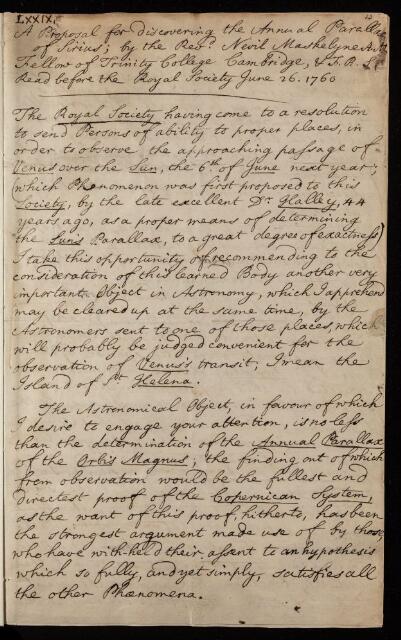 LXXIX.
A Proposal for discovering the Annual Parallax
of Sirius; by the Revd. Nevil Maskelyne A.M.
Fellow of Trinity College Cambridge, & F.R.S.
Read before the Royal Society June 26. 1760
The Royal Society having come to a resolution
to send Persons of ability to proper places, in
order to observe the approaching passage of
Venus over the Sun, the 6th. of June next year;
which Phænomenon was first proposed to this
Society, by the late excellent Dr. Halley, 44
years ago, as a proper means of determining
the Suns Parallax, to a great degree of exactness)
I take this opportunity of recommending to the
consideration of this learned Body another very
important Object in Astronomy, which I apprehend
may be cleared up at the same time, by the
Astronomers sent to one of those places, which
will probably be judged convenient for the
observation of Venus's transit; I mean the
Island of St. Helena.
The Astronomical Object, in favour of which
I desire to engage your attention, is no less
than the determination of the Annual Parallax
of the Orbis Magnus; the finding out of which
from observation would be the fullest and
directest proof of the Copernican System,
as the want of this proof, hitherto, has been
the strongest argument made use of by those,
who have with-held their assent to an hypothesis
which so fully, and yet simply, satisfies all
the other Phænomena.